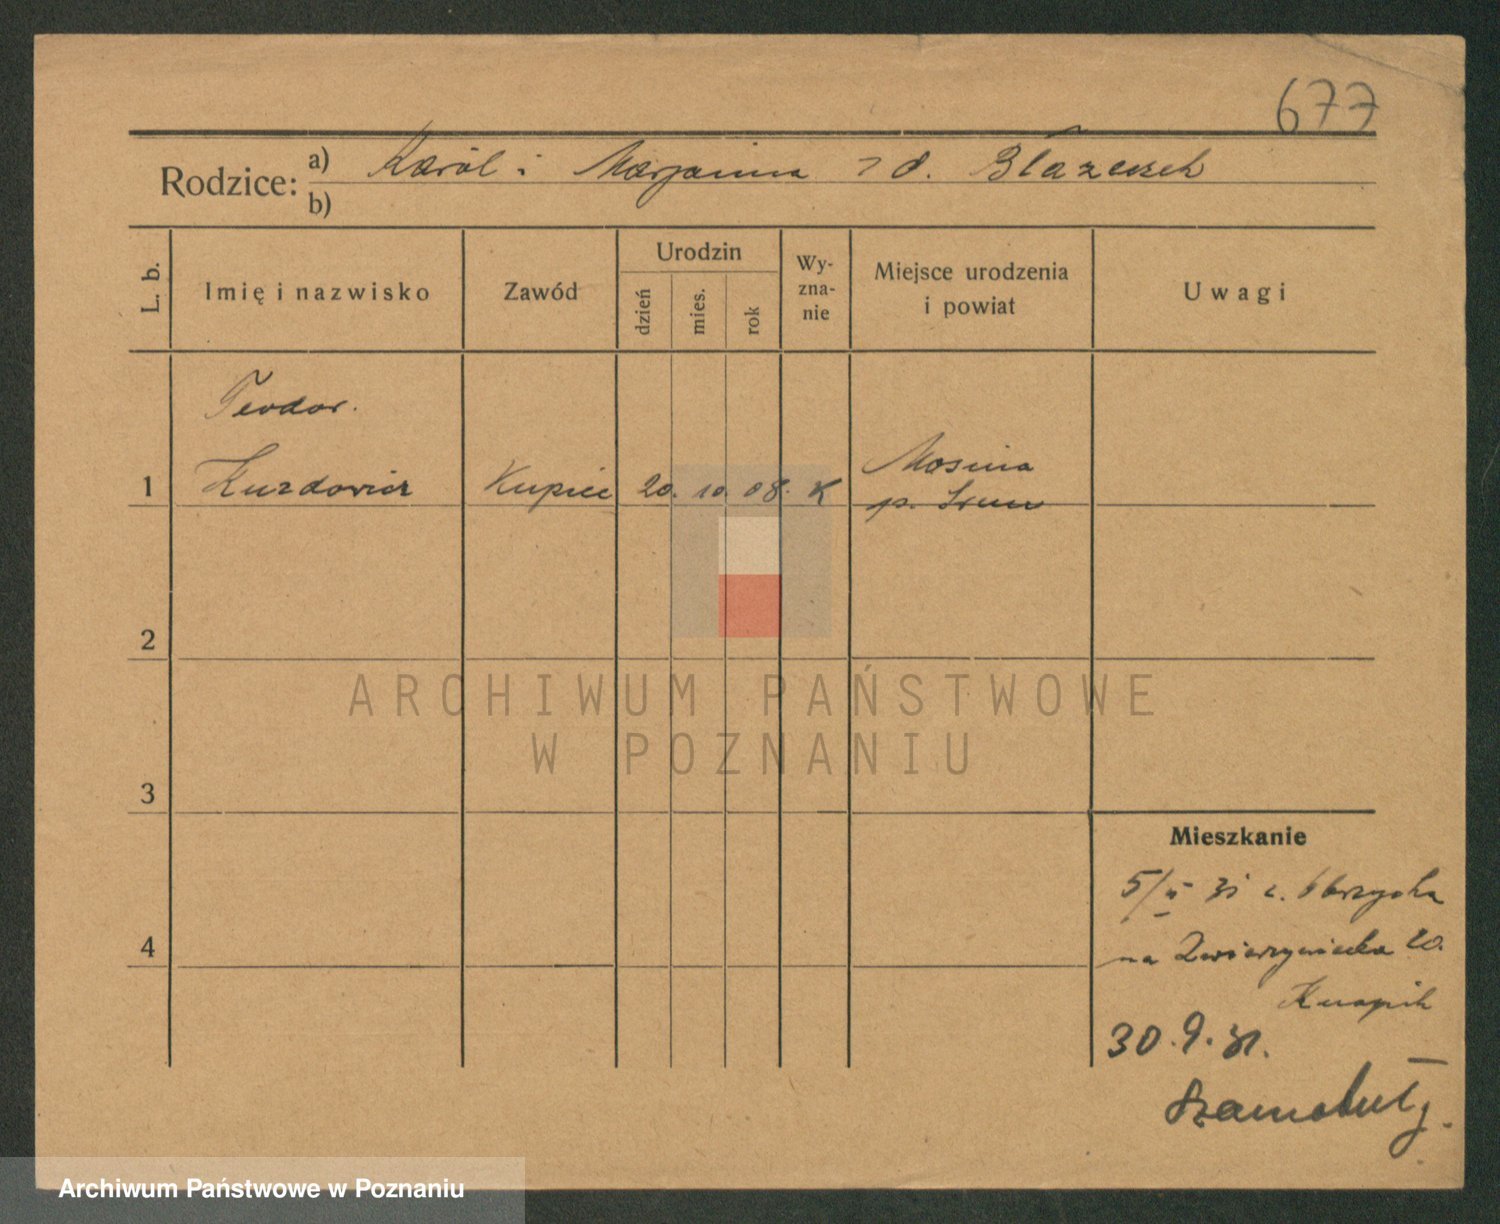 677
Rodzice: a) Karól i Marjanna z d. Błazeszek
b)
L. b. Imię i nazwisko Zawód Urodzin dzień mies. rok Wy-zna-nie Miejsce urodzenia i powiat Uwagi
Teodor.
1 Kurdowicz Kupiec 20. 10. 08. K Mosina
p. Śrem
2
ARCHIWUM PAŃSTWOWE
W POZNANIU
3
Mieszkanie
5/II 31 z. Obrzycka
4 na Zwierzyniecka 20.
Knapik
30.9.31.
Szamotuły.
Archiwum Państwowe w Poznaniu